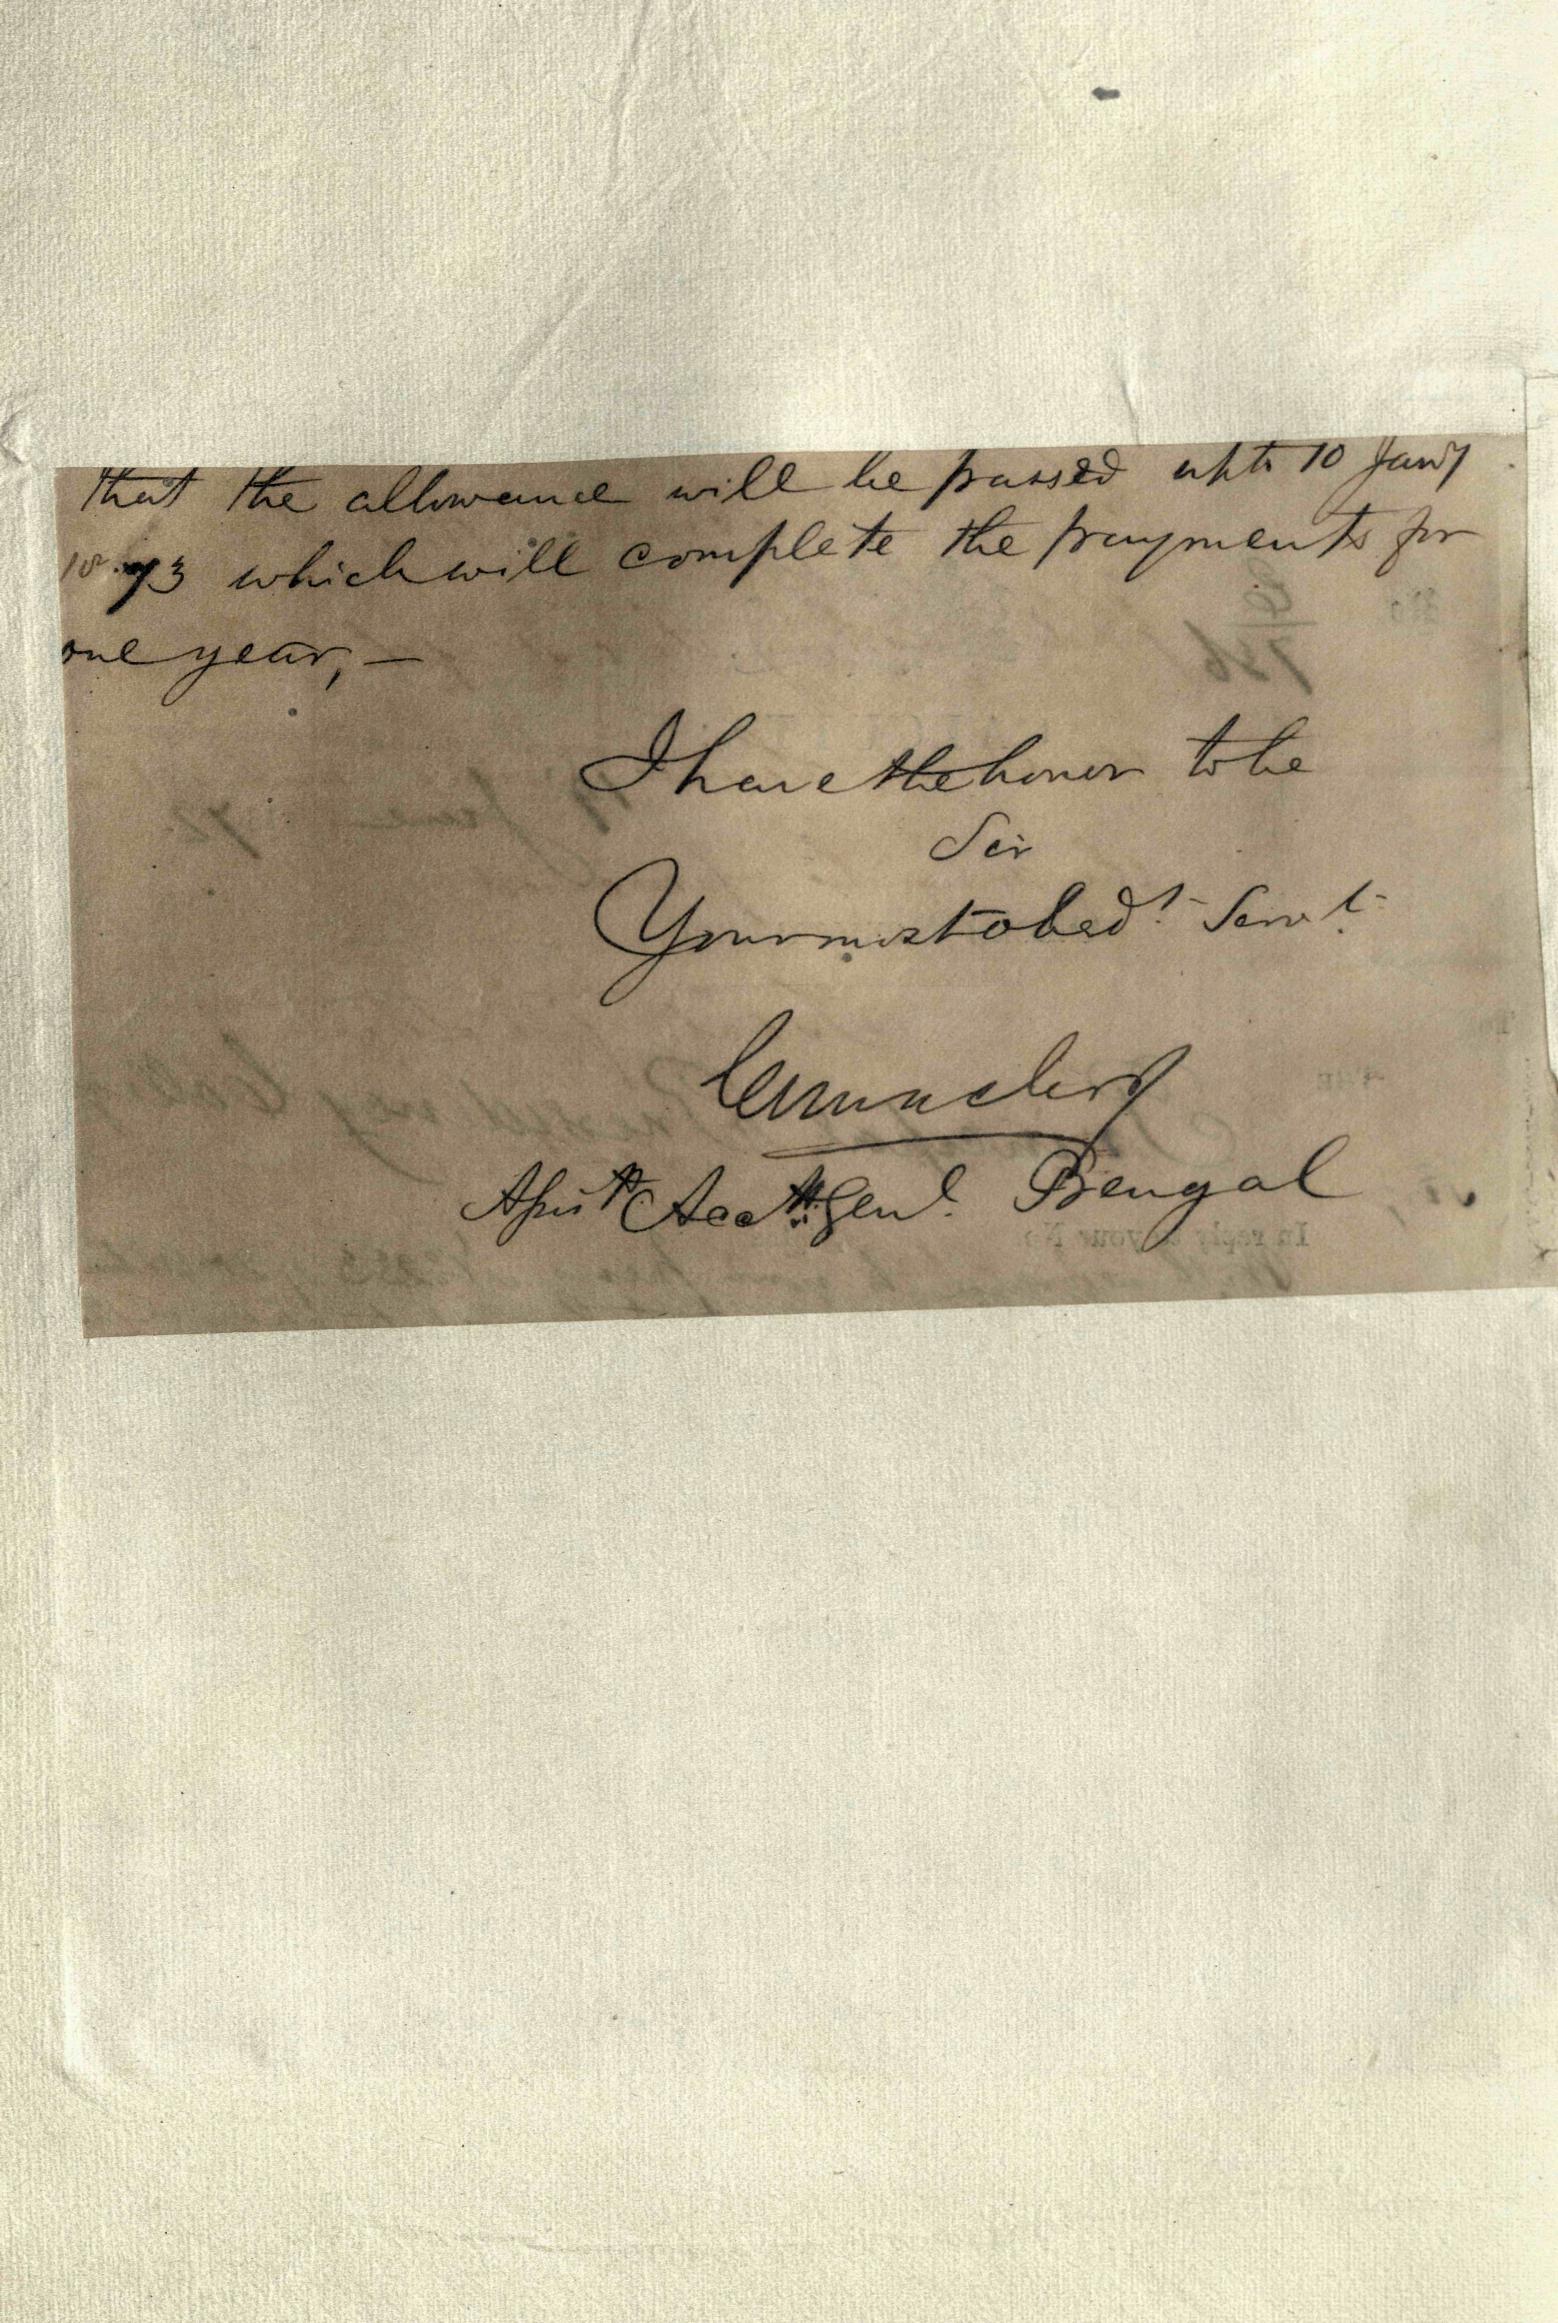 that the allowance will be passed upto 10 Jany
1873 which will complete the payments for
one year, —
I have the honor to be
Sir
Your most obedt. Servt.
Asstt Acctt. Genl. Bengal
In reply to your No